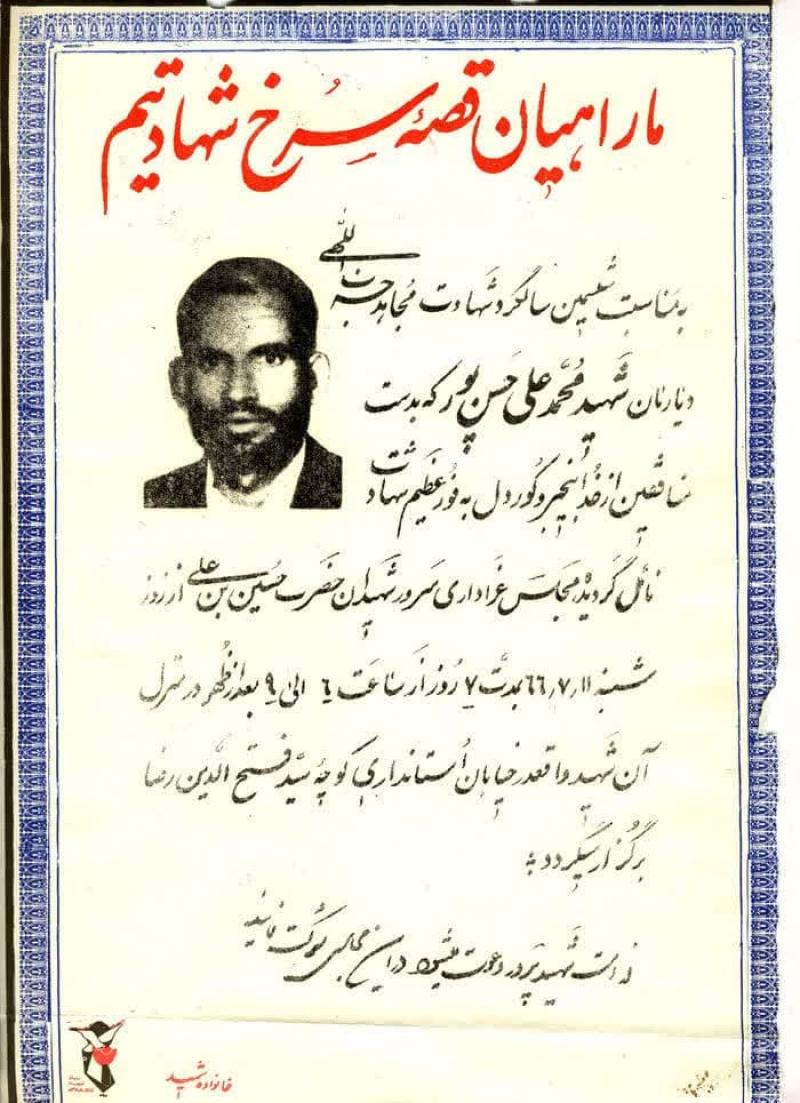 ما راهیان قصهٔ سرخ شهادتیم
به مناسبت ششمین سالگرد شهادت مجاهد حزب اللهی
شهید محمد علی حسن پور که بدست
منافقین از خدا بیخبر و کوردل به فوز عظیم شهادت
نائل گردید مجلس عزاداری سرور شهیدان حضرت حسین بن علی از روز
شنبه ۶۶٫۷٫۱۱ بمدت ۷ روز از ساعت ٦ الی ۹ بعد از ظهر در منزل
آن شهید واقع در خیابان استانداری کوچهٔ سید فتح الدین رضا
برگزار میگردد
از امت شهید پرور دعوت میشود در این مجالس شرکت نمایند
خانواده شهید